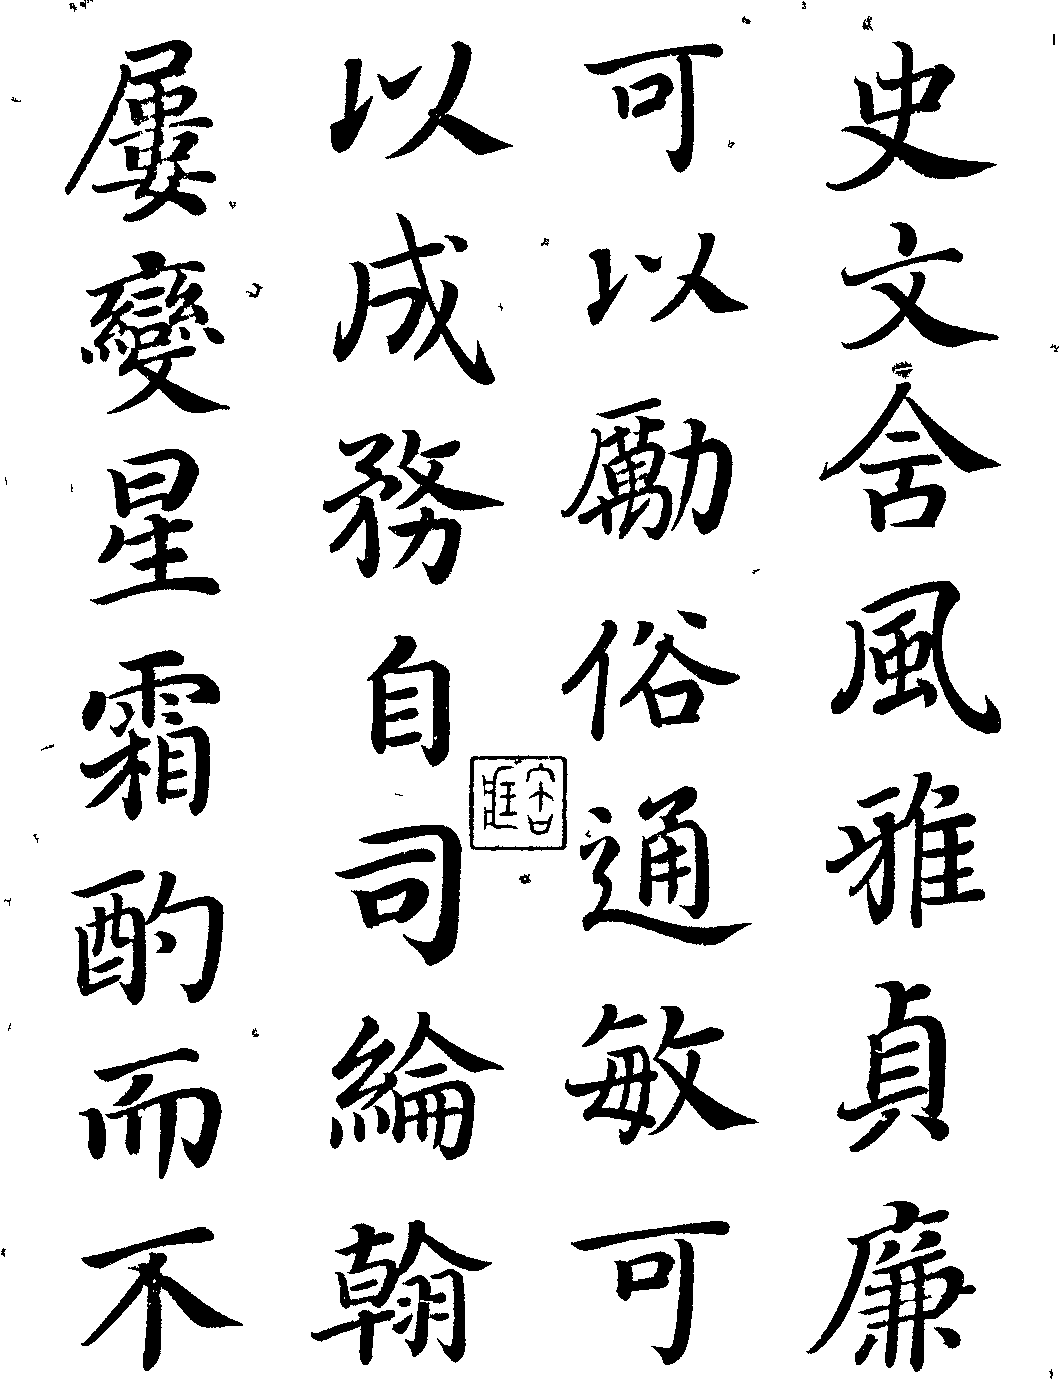 史文含風雅貞廉
可以勵俗通敏可
以成務自司綸翰
屢變星霜酌而不